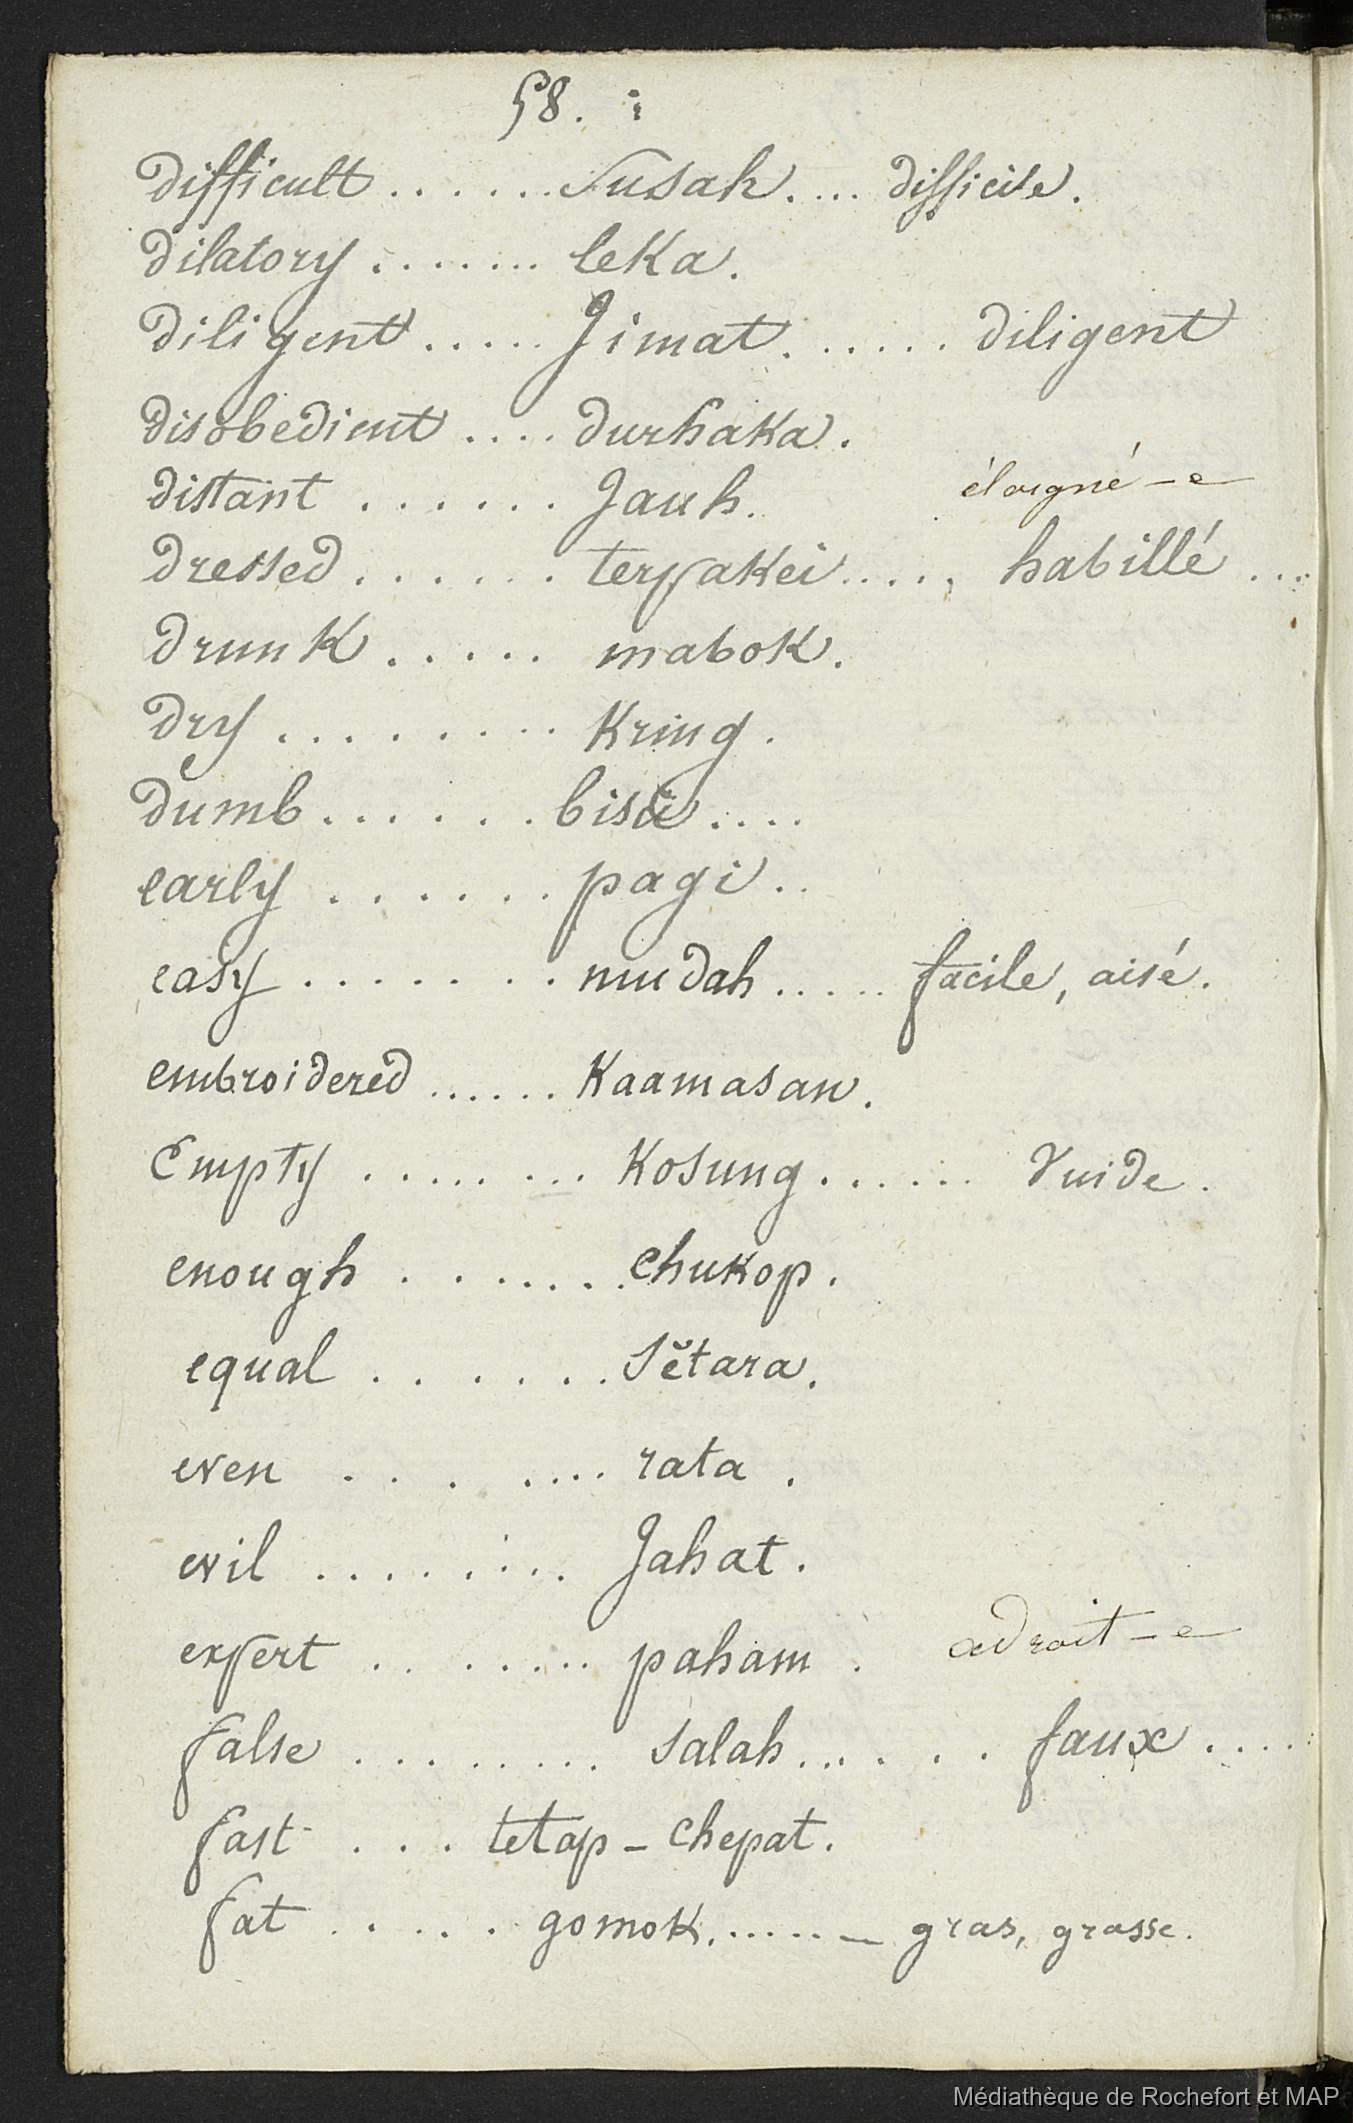 58.
difficult . . . . . . Susah. . . . difficile.
dilatory . . . . . . . leka.
diligent . . . . . Jimat. . . . . . diligent
disobedient . . . . durhaka.
distant . . . . . . Jauh. éloigné - e
dressed . . . . . . terpakei . . . . , habillé . . .
drunk . . . . . mabok.
dry . . . . . . . . kring.
dumb . . . . . . bisu . . . .
early . . . . . . pagi . .
easy . . . . . . . . mudah . . . . . facile, aisé.
embroidered . . . . . . Kaamasan.
Empty . . . . . . . . . Kosung . . . . . . Vuide.
enough . . . . . . . chukop.
equal . . . . . . . sĕtara.
even . . . . . . . rata.
evil . . . . . . . . Jahat.
expert . . . . . . . . paham. adroit - e
false . . . . . . . . . salah . . . . . . faux . . . .
fast . . . tetap - chepat.
fat . . . . . gomok. . . . . . - gras, grasse.
Médiathèque de Rochefort et MAP